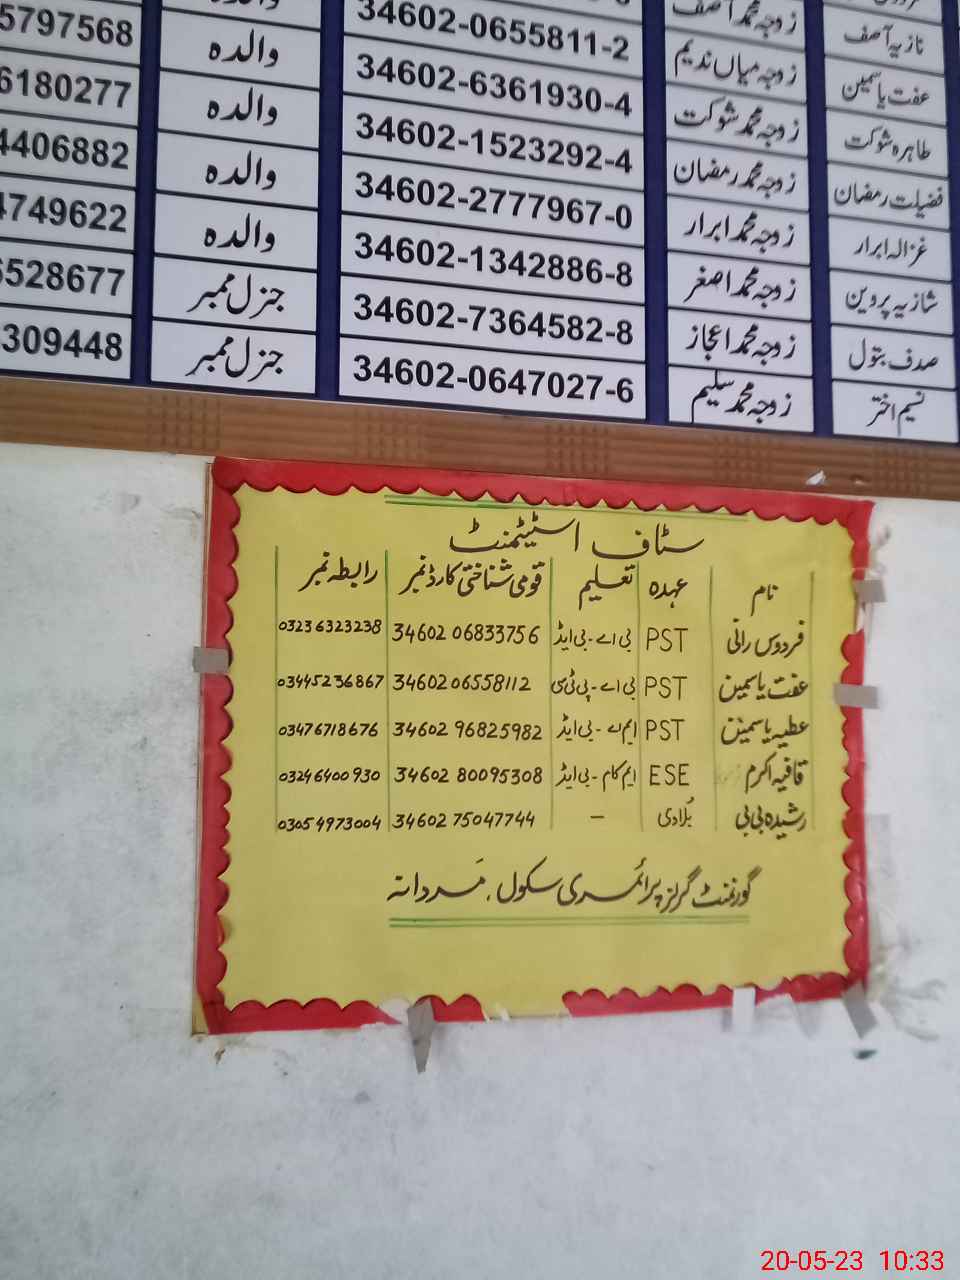 نازیہ آصف زوجہ محمد آصف 34602-0655811-2 والدہ 5797568
عفت یاسمین زوجہ میاں ندیم 34602-6361930-4 والدہ 6180277
طاہرہ شوکت زوجہ محمد شوکت 34602-1523292-4 والدہ 4406882
فضیلت رمضان زوجہ محمد رمضان 34602-2777967-0 والدہ 4749622
غزالہ ابرار زوجہ محمد ابرار 34602-1342886-8 جنرل ممبر 6528677
شازیہ پروین زوجہ محمد اصغر 34602-7364582-8 جنرل ممبر 309448
صدف بتول زوجہ محمد اعجاز 34602-0647027-6
نسیم اختر زوجہ محمد سلیم
سٹاف اسٹیٹمنٹ
نام عہدہ تعلیم قومی شناختی کارڈ نمبر رابطہ نمبر
فردوس رانی PST بی اے - بی ایڈ 34602 06833756 03236323238
عفت یاسمین PST بی اے - پی ٹی سی 34602 06558112 03445236867
عطیہ یاسمین PST ایم اے - بی ایڈ 34602 96825982 03476718676
قافیہ اکرم ESE ایم کام - بی ایڈ 34602 80095308 03246400930
رشیدہ بی بی بُلاوی – 34602 75047744 03054973004
گورنمنٹ گرلز پرائمری سکول، مَردانہ
20-05-23 10:33